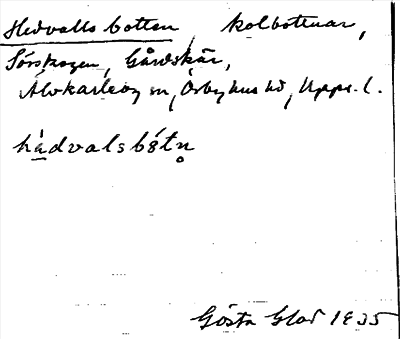 Hedvalls botten, kolbottnar,
Sörskogen, Gårdskär,
Älvkarleby sn, Örbyhus hd, Upps. l.
hǻdvalsbót̀n̥
Gösta Glad 1935